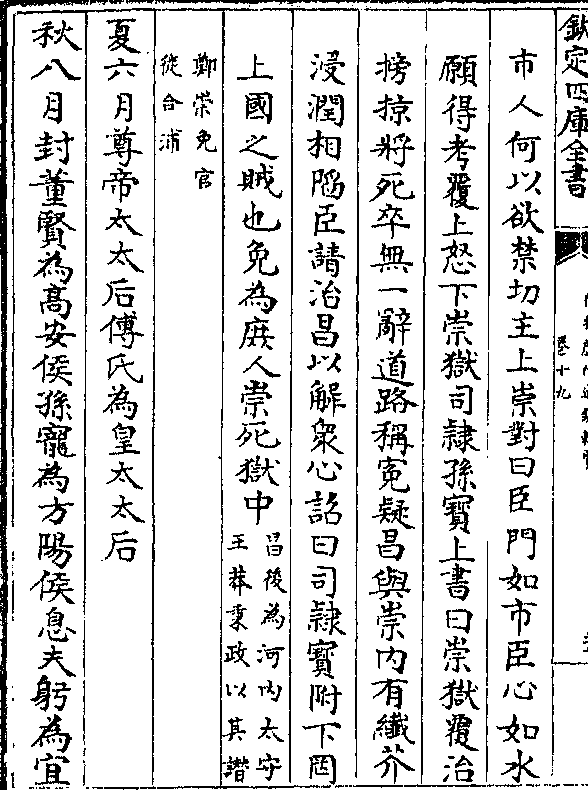 欽定四庫全書
卷十九
市人何以欲禁切主上崇對曰臣門如市臣心如水
願得考覆上怒下崇獄司隷孫寳上書曰崇獄覆治
搒掠將死卒無一辭道路稱寃疑昌與崇内有纎芥
浸潤相陷臣請治昌以解衆心詔曰司隷寳附下罔
上國之賊也免為庶人崇死獄中昌後為河内太守
王莽秉政以其譖
鄭崇免官
徙合浦
夏六月尊帝太太后傅氏為皇太太后
秋八月封董賢為髙安侯孫寵為方陽侯息夫躬為宜